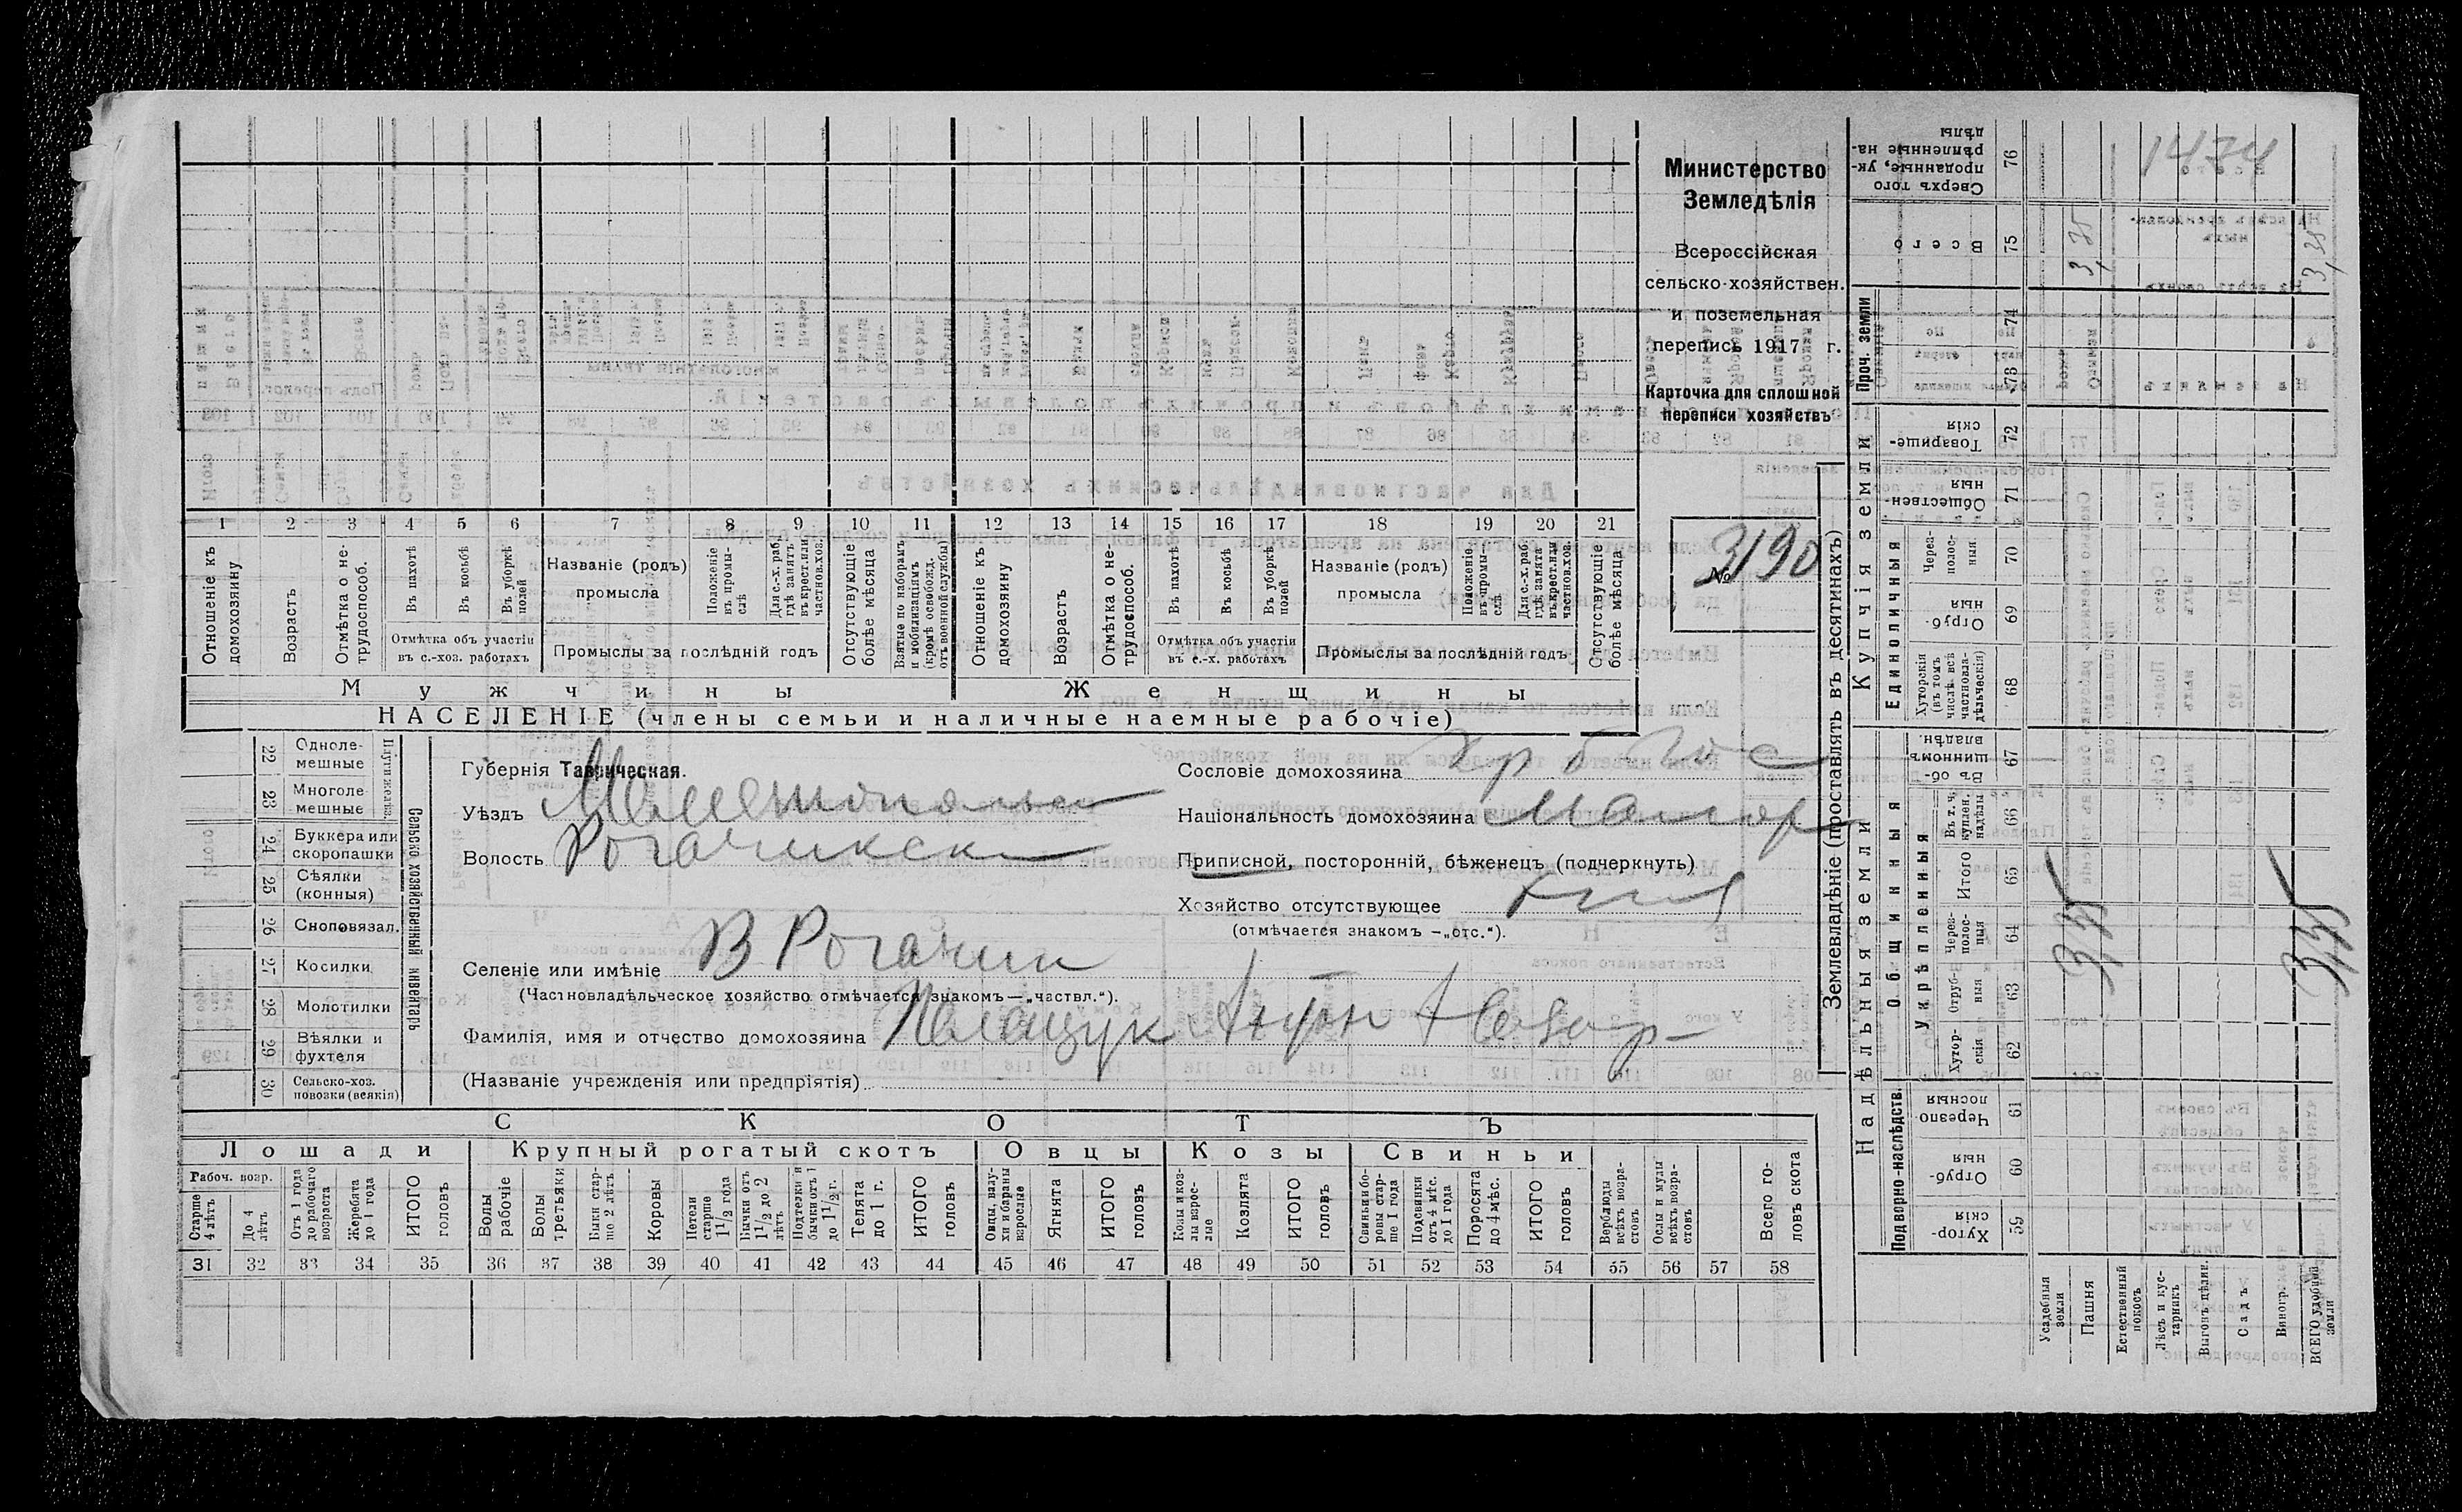 Министерство
Земледѣлія
Всероссійская
сельско-хозяйствен.
и поземельная
перепись 1917 г.
Карточка для сплошной
переписи хозяйствъ
№ 3190
1434
1 2 3 4 5 6 7 8 9 10 11 12 13 14 15 16 17 18 19 20 21
Отношеніе къ домохозяину
Возрастъ
Отмѣтка о не-трудоспособ.
Въ пахотѣ
Въ косьбѣ
Въ уборкѣ полей
Отмѣтка объ участіи
въ с.-хоз. работахъ
Названіе (родъ)
промысла
Положеніе въ промы-слѣ
Для с.-х. раб. гдѣ занятъ въ крест. или частнов. хоз.
Промыслы за послѣдній годъ
Отсутствующіе болѣе мѣсяца
Взятые по наборамъ и мобилизаціямъ (кромѣ освобожд. отъ военной службы)
Отношеніе къ домохозяину
Возрастъ
Отмѣтка о не-трудоспособ.
Въ пахотѣ
Въ косьбѣ
Въ уборкѣ полей
Отмѣтка объ участіи
въ с.-х. работахъ
Названіе (родъ)
промысла
Положеніе въ промы-слѣ
Для с.-х. раб. гдѣ занята въ крест. или частнов. хоз.
Промыслы за послѣдній годъ
Отсутствующіе болѣе мѣсяца
Мужчины
Женщины
НАСЕЛЕНІЕ (члены семьи и наличные наемные рабочіе)
22 Одноле-мешные
23 Многоле-мешные
24 Буккера или скоропашки
25 Сѣялки (конныя)
26 Сноповязал.
27 Косилки
28 Молотилки
29 Вѣялки и фухтеля
30 Сельско-хоз. повозки (всякія)
Сельско-хозяйственный инвентарь
Губернія Таврическая.
Уѣздъ Мелитопольск
Волость Рогачикск
Селеніе или имѣніе В Рогачик
(Частновладѣльческое хозяйство отмѣчается знакомъ — „частвл.“).
Фамилія, имя и отчество домохозяина
(Названіе учрежденія или предпріятія)
Сословіе домохозяина
Національность домохозяина Малор
Приписной, посторонній, бѣженецъ (подчеркнуть)
Хозяйство отсутствующее
(отмѣчается знакомъ — „отс.“).
СКОТЪ
Лошади
Крупный рогатый скотъ
Овцы
Козы
Свиньи
Рабоч. возр.
Старше 4 лѣтъ
До 4 лѣтъ
Отъ 1 года до рабочаго возраста
Жеребята до 1 года
ИТОГО головъ
Волы рабочіе
Волы третьяки
Быки стар-ше 2 лѣтъ
Коровы
Нетели старше 1 1/2 года
Бычки отъ 1 1/2 до 2 лѣтъ
Подтелки и бычки отъ 1 до 1 1/2 г.
Телята до 1 г.
ИТОГО головъ
Овцы, валу-хи и бараны взрослые
Ягнята
ИТОГО головъ
Козы и коз-лы взрос-лые
Козлята
ИТОГО головъ
Свиньи и бо-ровы стар-ше 1 года
Подсвинки отъ 4 мѣс. до 1 года
Поросята до 4 мѣс.
ИТОГО головъ
Верблюды всѣхъ возра-стовъ
Ослы и мулы всѣхъ возра-стовъ
Всего го-ловъ скота
31 32 33 34 35 36 37 38 39 40 41 42 43 44 45 46 47 48 49 50 51 52 53 54 55 56 57 58
Землевладѣніе (проставлять въ десятинахъ)
Надѣльныя земли
Купчія земли
Проч. земли
Подворно-наслѣдств.
Общинныя
Укрѣпленныя
Единоличныя
Хутор-скія 59
Отруб-ныя 60
Черезпо-лосныя 61
Хутор-скія 62
Отруб-ныя 63
Через-полос-ныя 64
Итого 65
Въ т. ч. куплен. надѣлы 66
Въ об-щинномъ владѣн. 67
Хуторскія (въ томъ числѣ всѣ частновла-дѣльческія) 68
Отруб-ныя 69
Через-полос-ныя 70
Обществен-ныя 71
Товарище-скія 72
73
74
Всего 75
Сверхъ того проданные, ук-рѣпленные на-дѣлы 76
Усадебныя земли
Пашня
Естественный покосъ
Лѣсъ и кус-тарникъ
Выгонъ цѣлин.
Садъ
Виногр.
ВСЕГО удобной земли